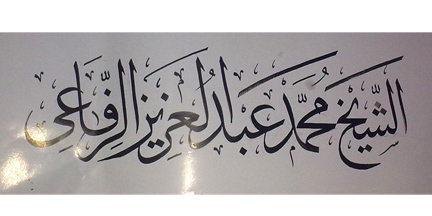 الشيخ محمد عبد العزيز الرفاعي